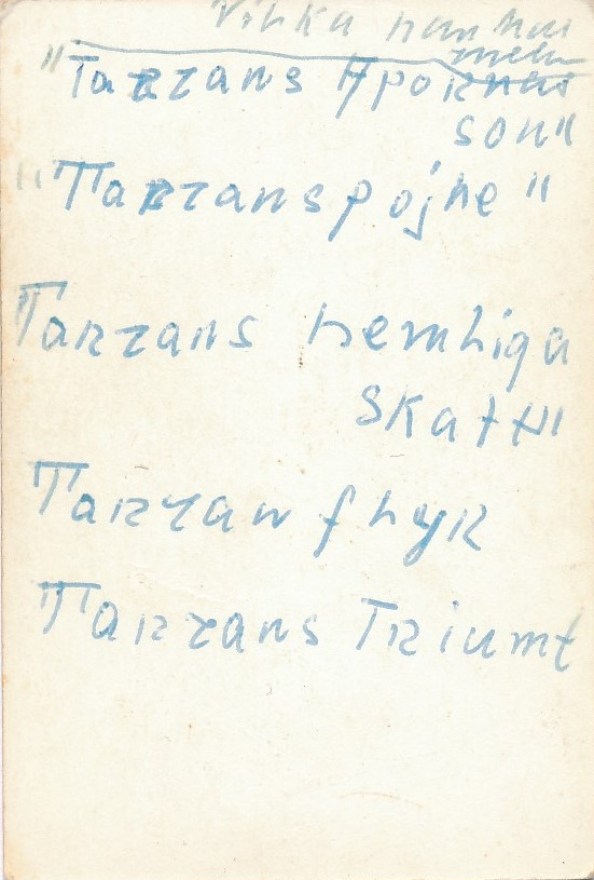 Vilka han har
"Tarzans Apornas
son"
"Tarzans pojke"
"Tarzans hemliga
skatt"
Tarzan flyr
Tarzans Triumf